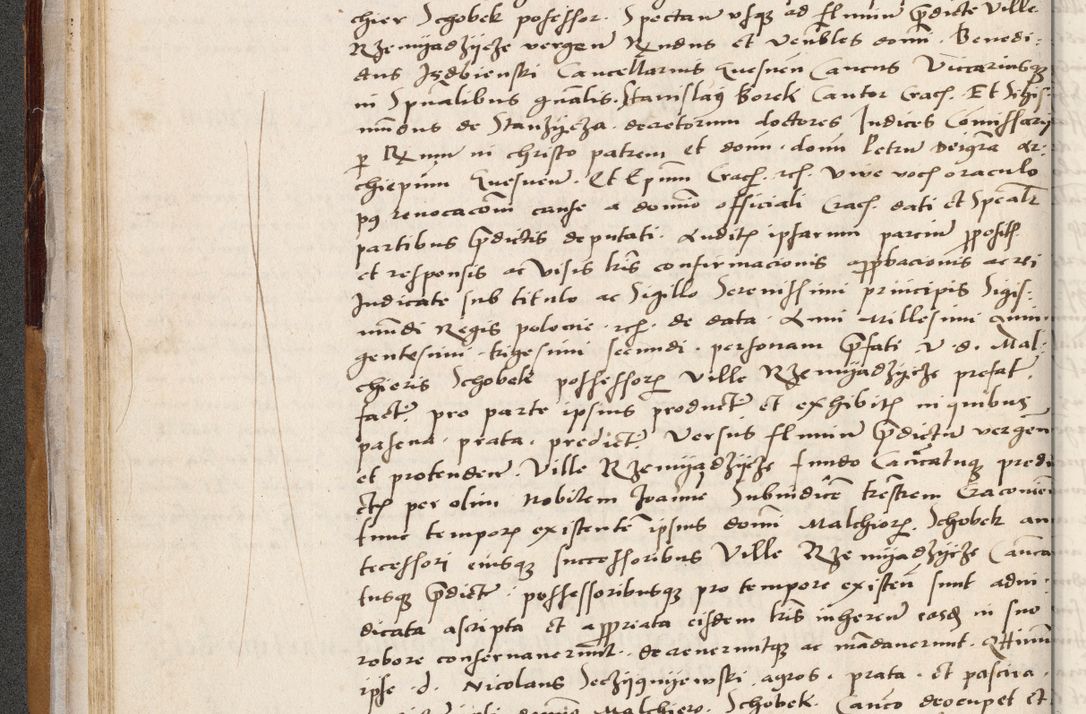 chier Schobek possessor. Spectan usque ad flumine predicte Ville
Rzemyadzycze vergen Rndus et Venbles domi. Benedi:
ctus Izdbienski Cancellarius Gnesnen Cancus Viccariusque
in Spualibus gnalis. Stanislaus Borek Cantor Crac. Et Sigis
mundus de Stanzycza. decretorum doctores Iudices Comissarij
per Rm in christo patrem et domi. domi Petru Deigra Ar:
chiepum Gnesnen. Et Epum Crac. etc. Vive vocis oraculo
post revocacom cause a domino officiali Crac. dati et Specalr
partibus predictis deputati. Auditis ipsarum parciu propositis
et responsis ac Visis lris confirmacionis approbacionis ac rei
Iudicate sub titulo ac Sigillo Serenissimi principis Sigis:
mundi Regis polonie. etc. de data. Anni Millesimi quin
gentesimi. trigesimi secundi. personam prefati. V. d. Mal:
chieris Schobek possessoris Ville Rzemyadzycze prefat.
fact pro parte ipsius product et exhibitis in quibus
pascua. prata. predict Versus flumine predictu vergen
et protenden Ville Rzemyjadzycze fundo Cancatuque predi
ctis per olim Nobilem Joanne Subiudice trestrem Cracovien
tunc temporis existente ipsius domi Malchioris Schobek an
tecessori eiusque successoribus Ville Rzemyadzycze Canca
tusque predicte. possessoribusque pro tempore existen sunt adiu:
dicata ascripta et appropriata eisdem lris inheren easdem in suo
robore conservaverunt. decreveruntque ac mandaverunt. Attinum
ipse. d. Nicolaus Seczygnijewski. agros. prata. et pascua.
domino Malchier. Schobek. Canco deoccupet et